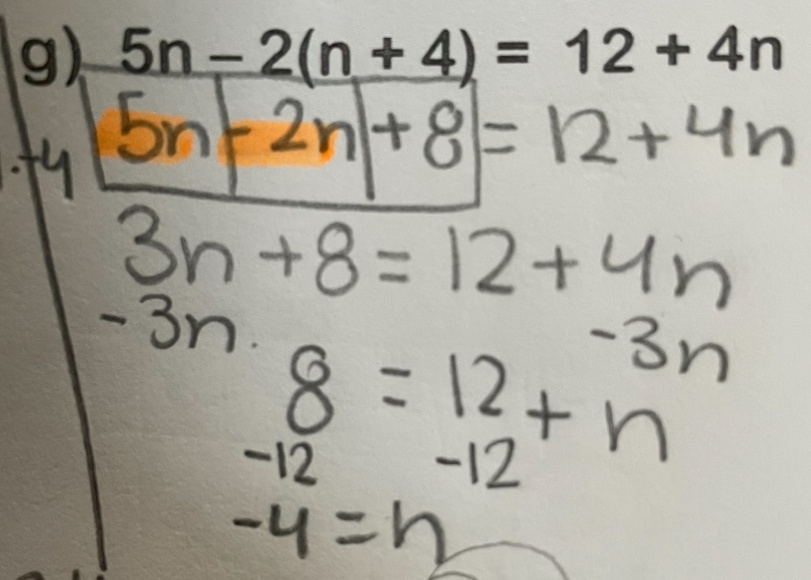 g) 5n – 2(n + 4) = 12 + 4n
5n - 2n + 8 = 12 + 4n
3n + 8 = 12 + 4n
-3n. -3n
8 = 12 + n
-12 -12
-4 = n